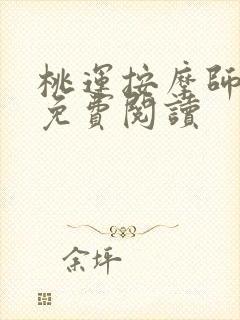 桃運按摩師
免費閱讀
余坪